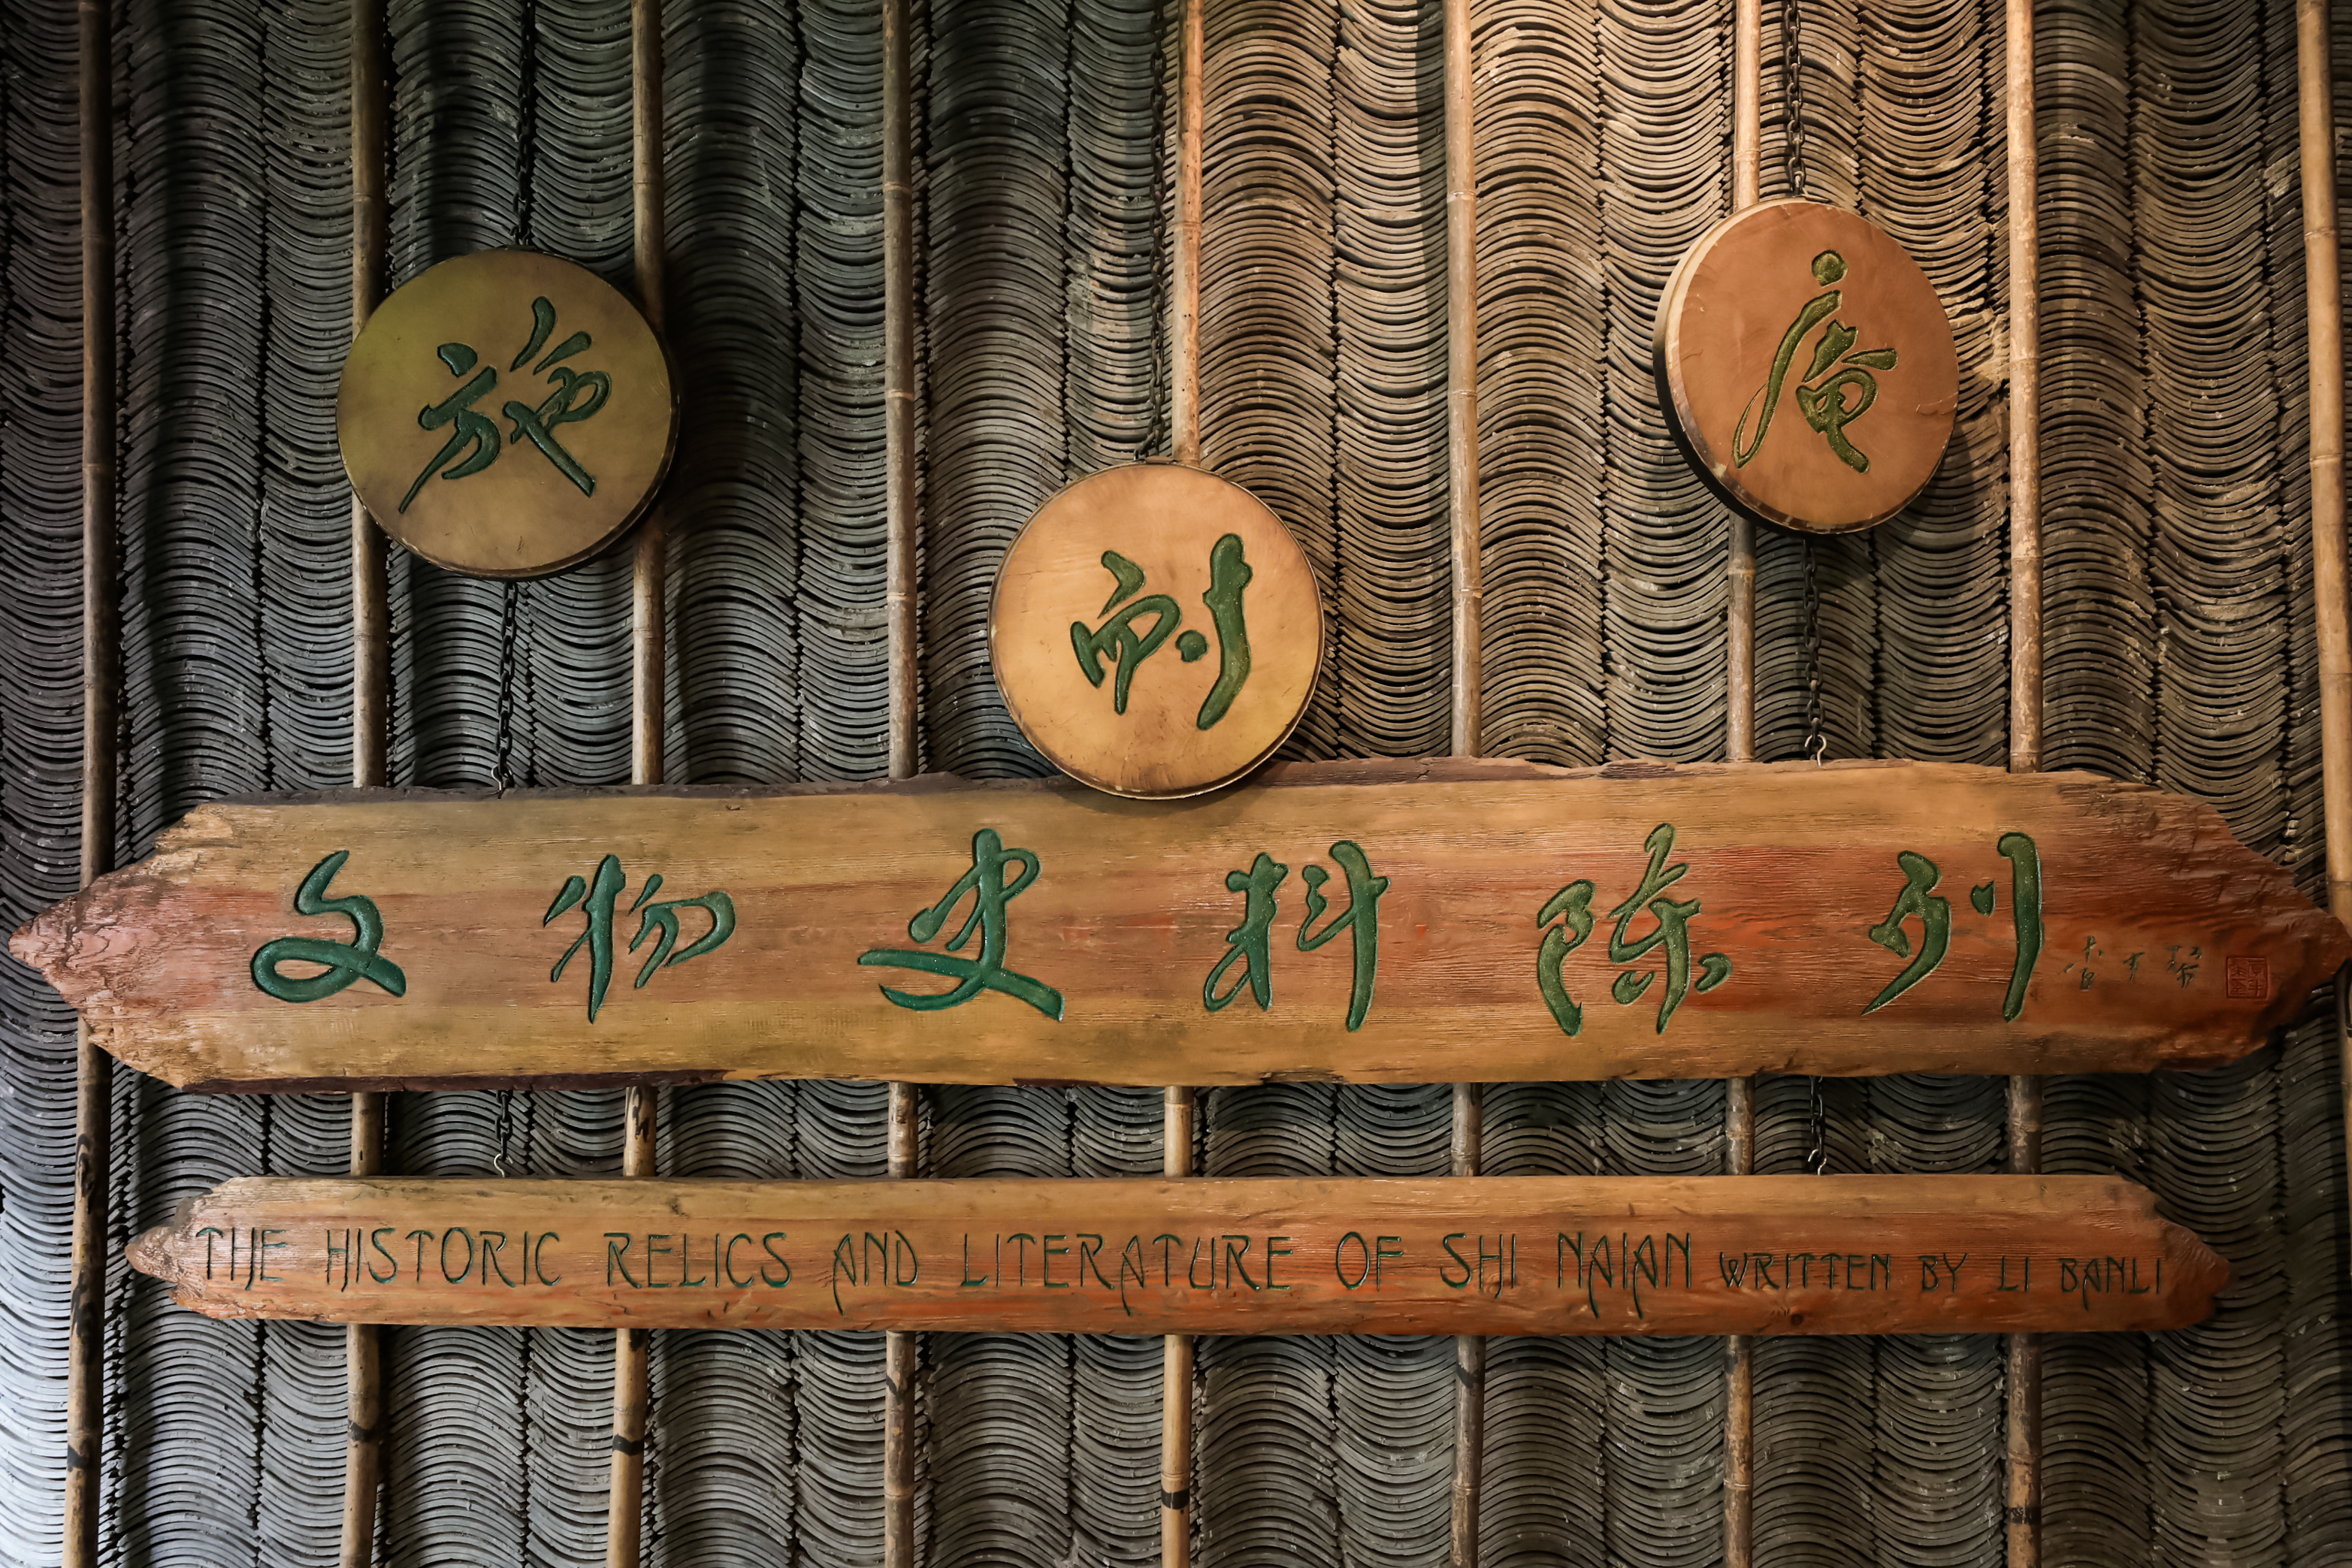 施耐庵
文物史料陈列
李半黎
THE HISTORIC RELICS AND LITERATURE OF SHI NAIAN WRITTEN BY LI BANLI